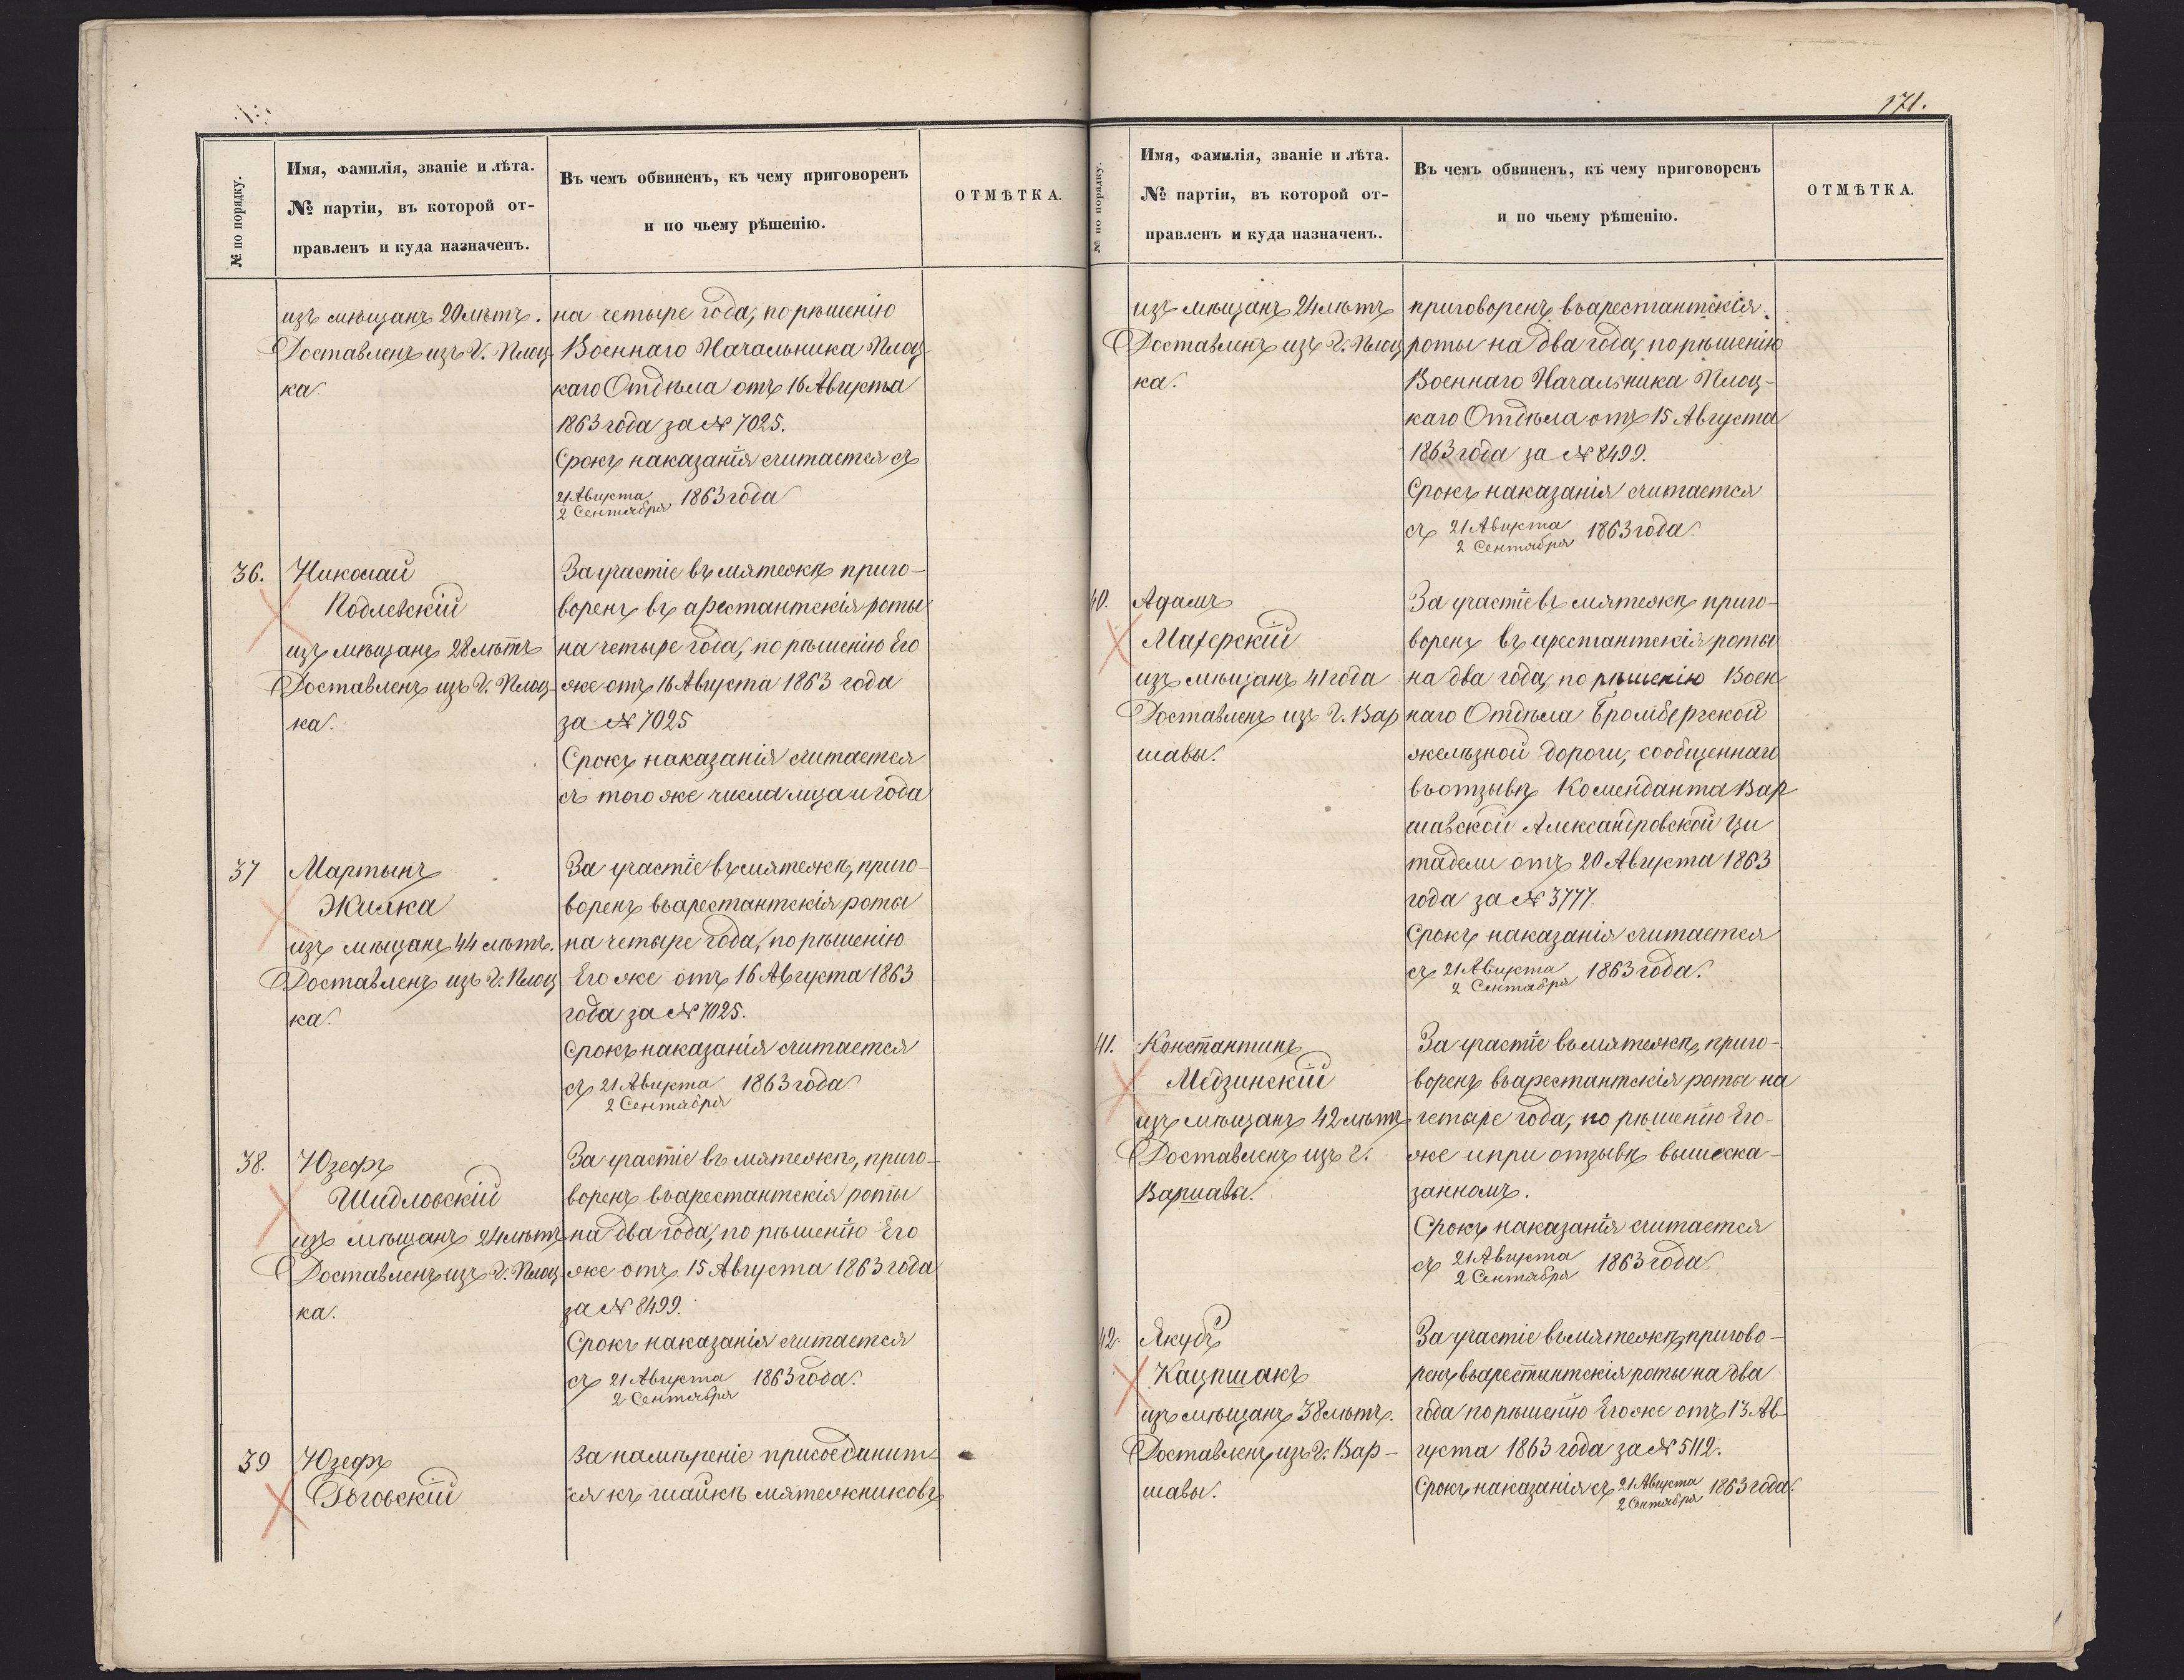 171.
№ по порядку.
Имя, фамилія, званіе и лѣта.
№ партіи, въ которой от-
правленъ и куда назначенъ.
Въ чемъ обвиненъ, къ чему приговоренъ
и по чьему рѣшенію.
ОТМѢТКА.
изъ мѣщанъ 20 лѣтъ.
Доставленъ изъ г. Плоц-
ка
на четыре года, по рѣшенію
Военнаго Начальника Плоц-
каго Отдѣла отъ 16 Августа
1863 года за № 7025.
Срокъ наказанія считается съ
21 Августа
2 Сентября 1863 года
36.
Николай
Подлевскій
изъ мѣщанъ 28 лѣтъ
Доставленъ изъ г. Плоц-
ка.
За участіе въ мятежѣ приго-
воренъ въ арестантскія роты
на четыре года, по рѣшенію Его
же отъ 16 Августа 1863 года
за № 7025
Срокъ наказанія считается
съ того же числа м-ца и года
37
Мартынъ
Жилка
изъ мѣщанъ 44 лѣтъ.
Доставленъ изъ г. Плоц
ка.
За участіе въ мятежѣ, приго-
воренъ въ арестантскія роты
на четыре года, по рѣшенію
Его же отъ 16 Августа 1863
года за № 7025.
Срокъ наказанія считается
съ 21 Августа
2 Сентября 1863 года
38.
Юзефъ
Шидловскій
изъ мѣщанъ 24 лѣтъ
Доставленъ изъ г. Плоц-
ка.
За участіе въ мятежѣ, приго-
воренъ въ арестантскія роты
на два года, по рѣшенію Его
же отъ 15 Августа 1863 года
за № 8499.
Срокъ наказанія считается
съ 21 Августа
2 Сентября 1863 года.
39
Юзефъ
За намѣреніе присоединит-
ся къ шайкѣ мятежниковъ
№ по порядку.
Имя, фамилія, званіе и лѣта.
№ партіи, въ которой от-
правленъ и куда назначенъ.
Въ чемъ обвиненъ, къ чему приговоренъ
и по чьему рѣшенію.
ОТМѢТКА.
изъ мѣщанъ 24 лѣтъ
Доставленъ изъ г. Плоц
ка.
приговоренъ въ арестантскія
роты на два года, по рѣшенію
Военнаго Начальника Плоц-
каго Отдѣла отъ 15 Августа
1863 года за № 8499.
Срокъ наказанія считается
съ 21 Августа
2 Сентября 1863 года.
40.
Адамъ
изъ мѣщанъ 41 года
Доставленъ изъ г. Вар
шавы.
За участіе въ мятежѣ приго-
воренъ въ арестантскія роты
на два года, по рѣшенію Воен
наго Отдѣла Бромбергской
желѣзной дороги, сообщеннаи
въ отзывѣ Коменданта Вар
шавской Александровской Ци
тадели отъ 20 Августа 1863
года за № 3777.
Срокъ наказанія считается
съ 21 Августа
2 Сентября 1863 года.
41.
Константинъ
Медзинскій
изъ мѣщанъ 42 лѣтъ
Доставленъ изъ г.
Варшавы.
За участіе въ мятежѣ, приго-
воренъ въ арестантскія роты на
четыре года, по рѣшенію Его-
же и при отзывѣ вышеска-
занномъ.
Срокъ наказанія считается
съ 21 Августа
2 Сентября 1863 года.
42.
Якубъ
Кацпшакъ
изъ мѣщанъ 38 лѣтъ.
Доставленъ изъ г. Вар-
шавы.
За участіе въ мятежѣ, пригово-
ренъ въ арестантскія роты на два
года по рѣшенію Его же отъ 13 Ав-
густа 1863 года за № 5112.
Срокъ наказанія съ 21 Августа
2 Сентября 1863 года.